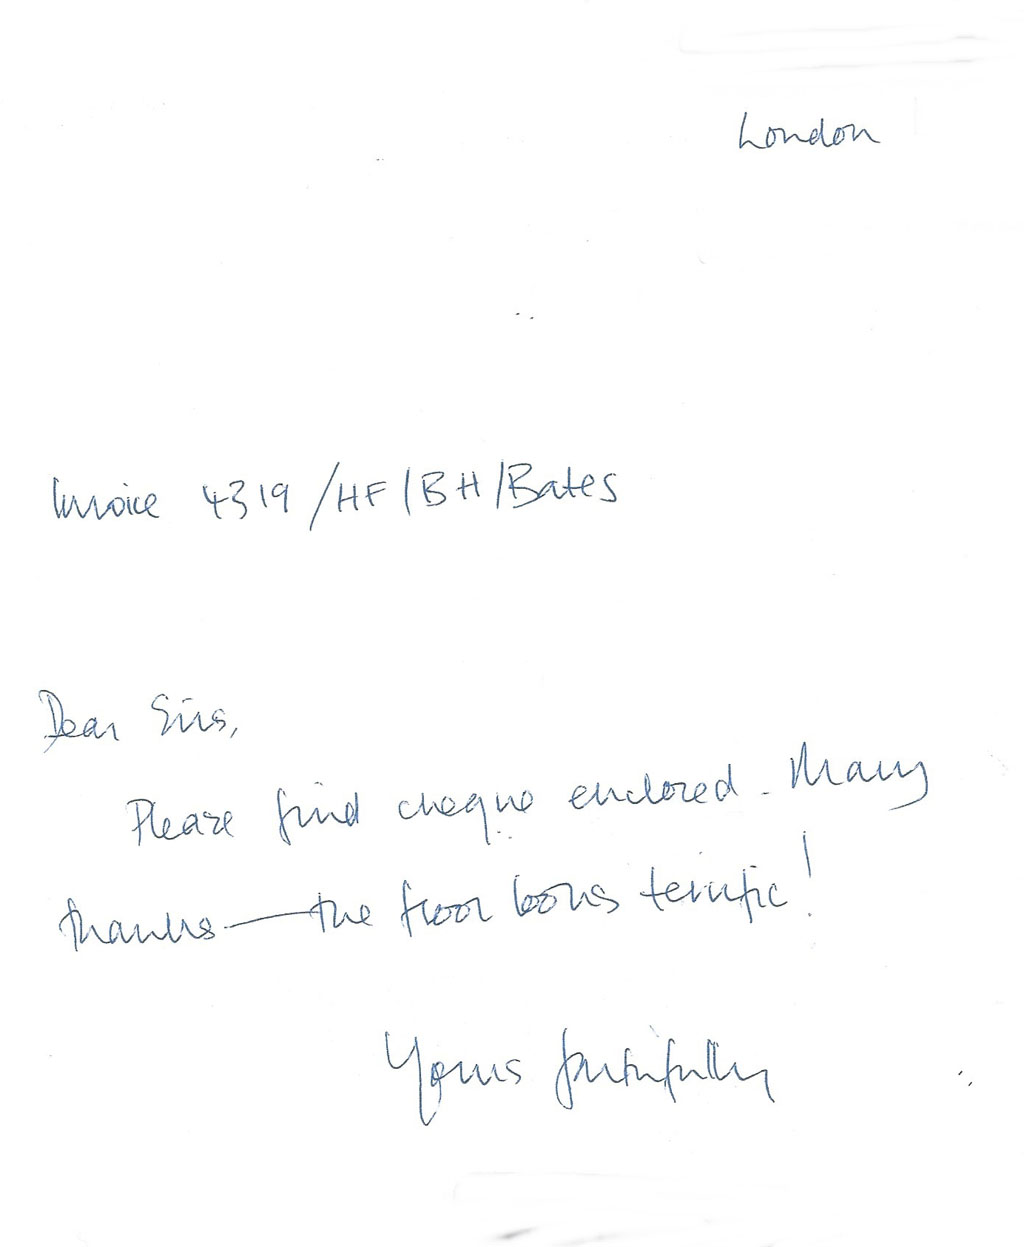 London
Invoice 4319/HF/BH/Bates
Dear Sirs,
Please find cheque enclosed. Many
thanks — the floor looks terrific!
Yours faithfully